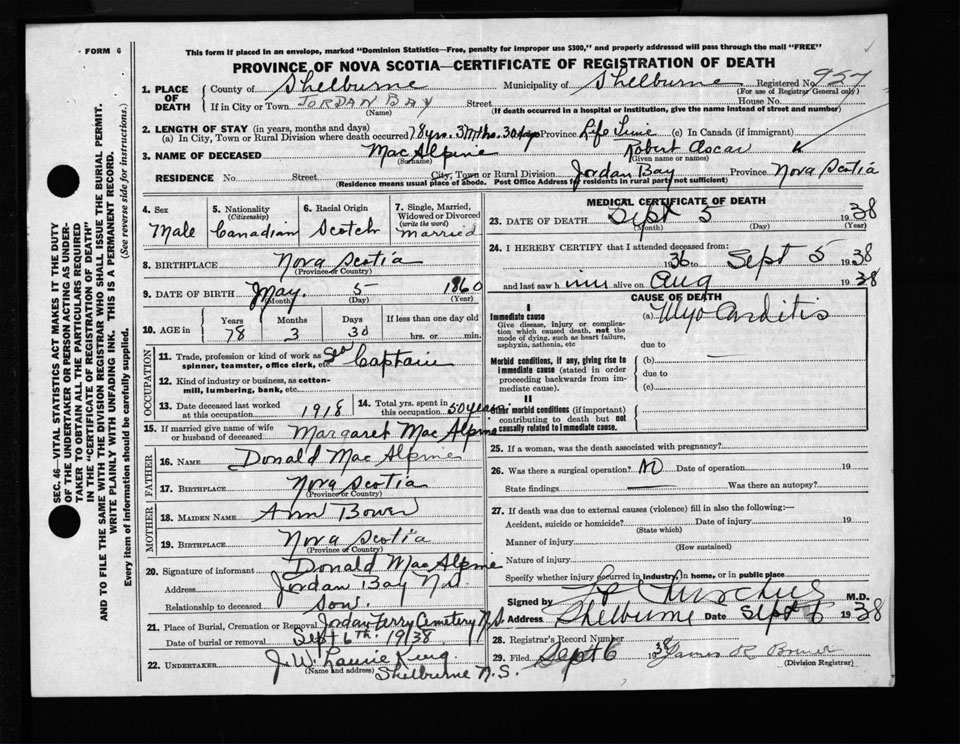 FORM 6
This form if placed in an envelope, marked "Dominion Statistics—Free, penalty for improper use $300," and properly addressed will pass through the mail "FREE"
PROVINCE OF NOVA SCOTIA—CERTIFICATE OF REGISTRATION OF DEATH
SEC. 46—VITAL STATISTICS ACT MAKES IT THE DUTY
OF THE UNDERTAKER OR PERSON ACTING AS UNDER-
TAKER TO OBTAIN ALL THE PARTICULARS REQUIRED
IN THE "CERTIFICATE OF REGISTRATION OF DEATH"
AND TO FILE THE SAME WITH THE DIVISION REGISTRAR WHO SHALL ISSUE THE BURIAL PERMIT.
WRITE PLAINLY WITH UNFADING INK. THIS IS A PERMANENT RECORD.
Every item of information should be carefully supplied. (See reverse side for instructions.)
1. PLACE OF DEATH
County of Shelburne Municipality of Shelburne Registered No. 957
(For use of Registrar General only)
If in City or Town JORDAN BAY Street House No.
(Name) (If death occurred in a hospital or institution, give the name instead of street and number)
2. LENGTH OF STAY (in years, months and days)
(a) In City, Town or Rural Division where death occurred 78 yrs. 3 Mths. 30 days Province Life Time (c) In Canada (if immigrant)
3. NAME OF DECEASED Mac Alpine Robert Oscar
(Surname) (Given name or names)
RESIDENCE No. Street City, Town or Rural Division Jordan Bay Province Nova Scotia
(Residence means usual place of abode. Post Office Address for residents in rural parts not sufficient)
4. Sex 5. Nationality (Citizenship) 6. Racial Origin 7. Single, Married, Widowed or Divorced (write the word)
Male Canadian Scotch Married
8. BIRTHPLACE Nova Scotia
(Province or Country)
9. DATE OF BIRTH May 5 1860
(Month) (Day) (Year)
10. AGE in Years Months Days If less than one day old
78 3 30 hrs. or min.
OCCUPATION
11. Trade, profession or kind of work as spinner, teamster, office clerk, etc. Captain
12. Kind of industry or business, as cotton-mill, lumbering, bank, etc.
13. Date deceased last worked at this occupation 1918
14. Total yrs. spent in this occupation 50 years
15. If married give name of wife or husband of deceased Margaret Mac Alpine
FATHER
16. Name Donald Mac Alpine
17. Birthplace Nova Scotia
(Province or Country)
MOTHER
18. MAIDEN NAME Ann Bower
19. BIRTHPLACE Nova Scotia
(Province or Country)
20. Signature of informant Donald Mac Alpine
Address Jordan Bay N.S.
Relationship to deceased Son.
21. Place of Burial, Cremation or Removal Jordan Ferry Cemetery N.S.
Date of burial or removal Sept 6th. 1938
22. UNDERTAKER J.W. Laurie King
(Name and address) Shelburne N.S.
MEDICAL CERTIFICATE OF DEATH
23. DATE OF DEATH Sept 5 1938
(Month) (Day) (Year)
24. I HEREBY CERTIFY that I attended deceased from:
1936 to Sept 5 1938
and last saw him alive on Aug 1938
CAUSE OF DEATH
I
Immediate cause
Give disease, injury or complication which caused death, not the mode of dying, such as heart failure, asphyxia, asthenia, etc
(a) Myocarditis
due to
Morbid conditions, if any, giving rise to immediate cause (stated in order proceeding backwards from immediate cause).
(b)
due to
(c)
II
Other morbid conditions (if important) contributing to death but not causally related to immediate cause.
25. If a woman, was the death associated with pregnancy?
26. Was there a surgical operation? No Date of operation 19
State findings Was there an autopsy?
27. If death was due to external causes (violence) fill in also the following:—
Accident, suicide or homicide? Date of injury 19
(State which)
Manner of injury
(How sustained)
Nature of injury
Specify whether injury occurred in industry, in home, or in public place
Signed by M.D.
Address Shelburne Date Sept 6 1938
28. Registrar's Record Number
29. Filed Sept 6 1938 James R Bower
(Division Registrar)